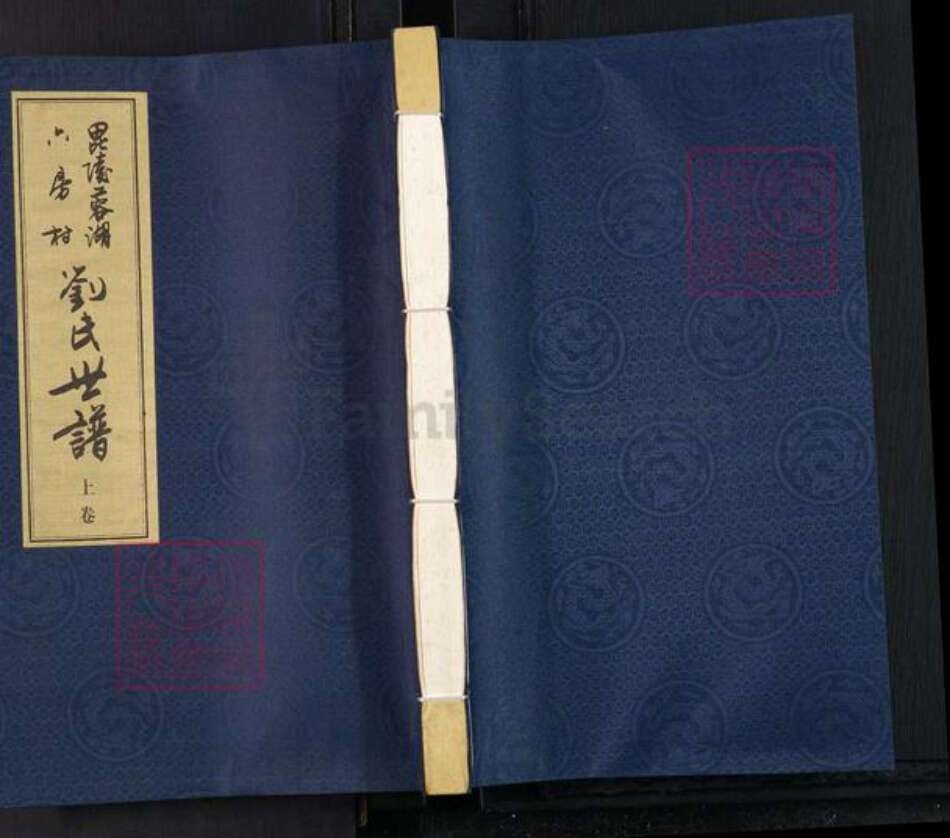 毘陵蓉湖
六房村
劉氏世譜
上卷